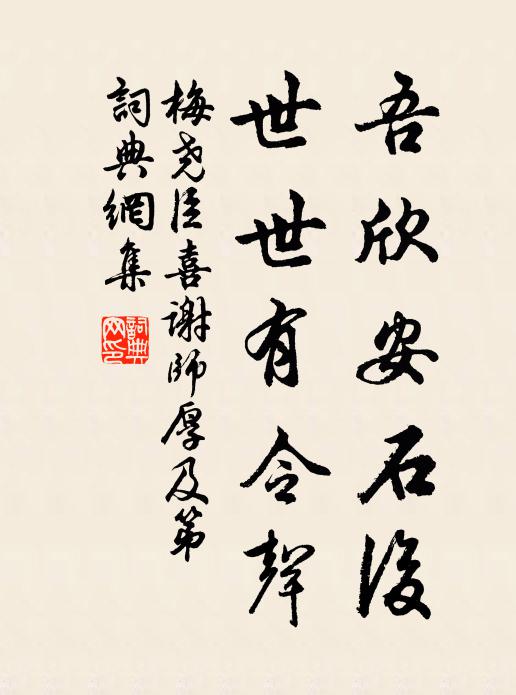 吾欣安石後
世世有令聲
梅尧臣喜謝師厚及第
詞典網集
詞典
网印